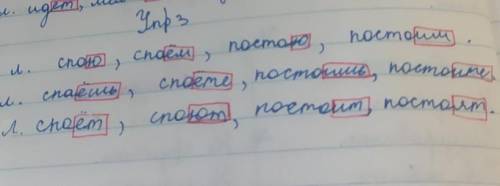 л. идёт,
Упр 3
л. спою, споём, постою, постоим.
л. споёшь, споёте, постоишь, постоите
л. споёт, споют, постоит, постоят.